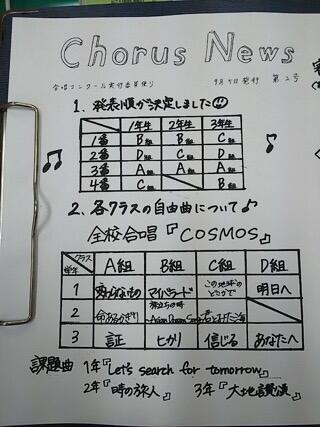 Chorus News
合唱コンクール実行委員便り 9月5日発行 第2号
1、発表順が決定しました
1年生 2年生 3年生
1番 B組 B組 C組
2番 D組 C組 D組
3番 A組 A組 A組
4番 C組 B組
2、各クラスの自由曲について♪
全校合唱『COSMOS』
クラス 学年 A組 B組 C組 D組
1 変わらないもの マイバラード この地球のどこかで 明日へ
2 命あるかぎり 旅立ちの時 ~Asian Dream Song~
3 証 ヒカリ 信じる あなたへ
課題曲 1年『Let's search for tomorrow』
2年『時の旅人』 3年『大地讃頌』